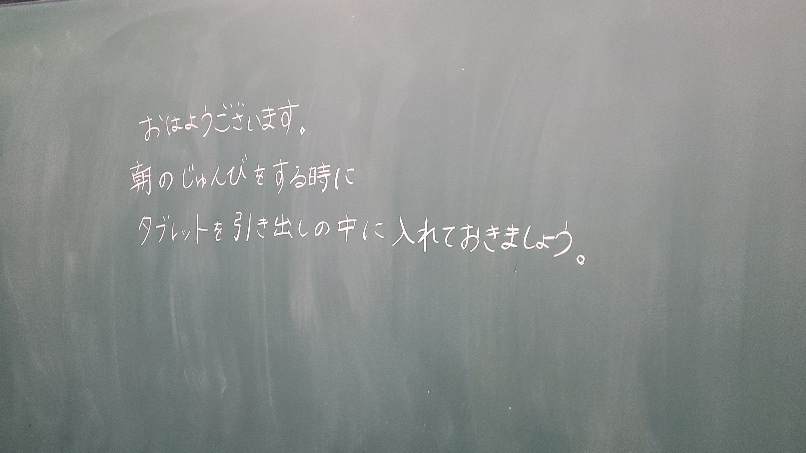 おはようございます。
朝のじゅんびをする時に
タブレットを引き出しの中に入れておきましょう。